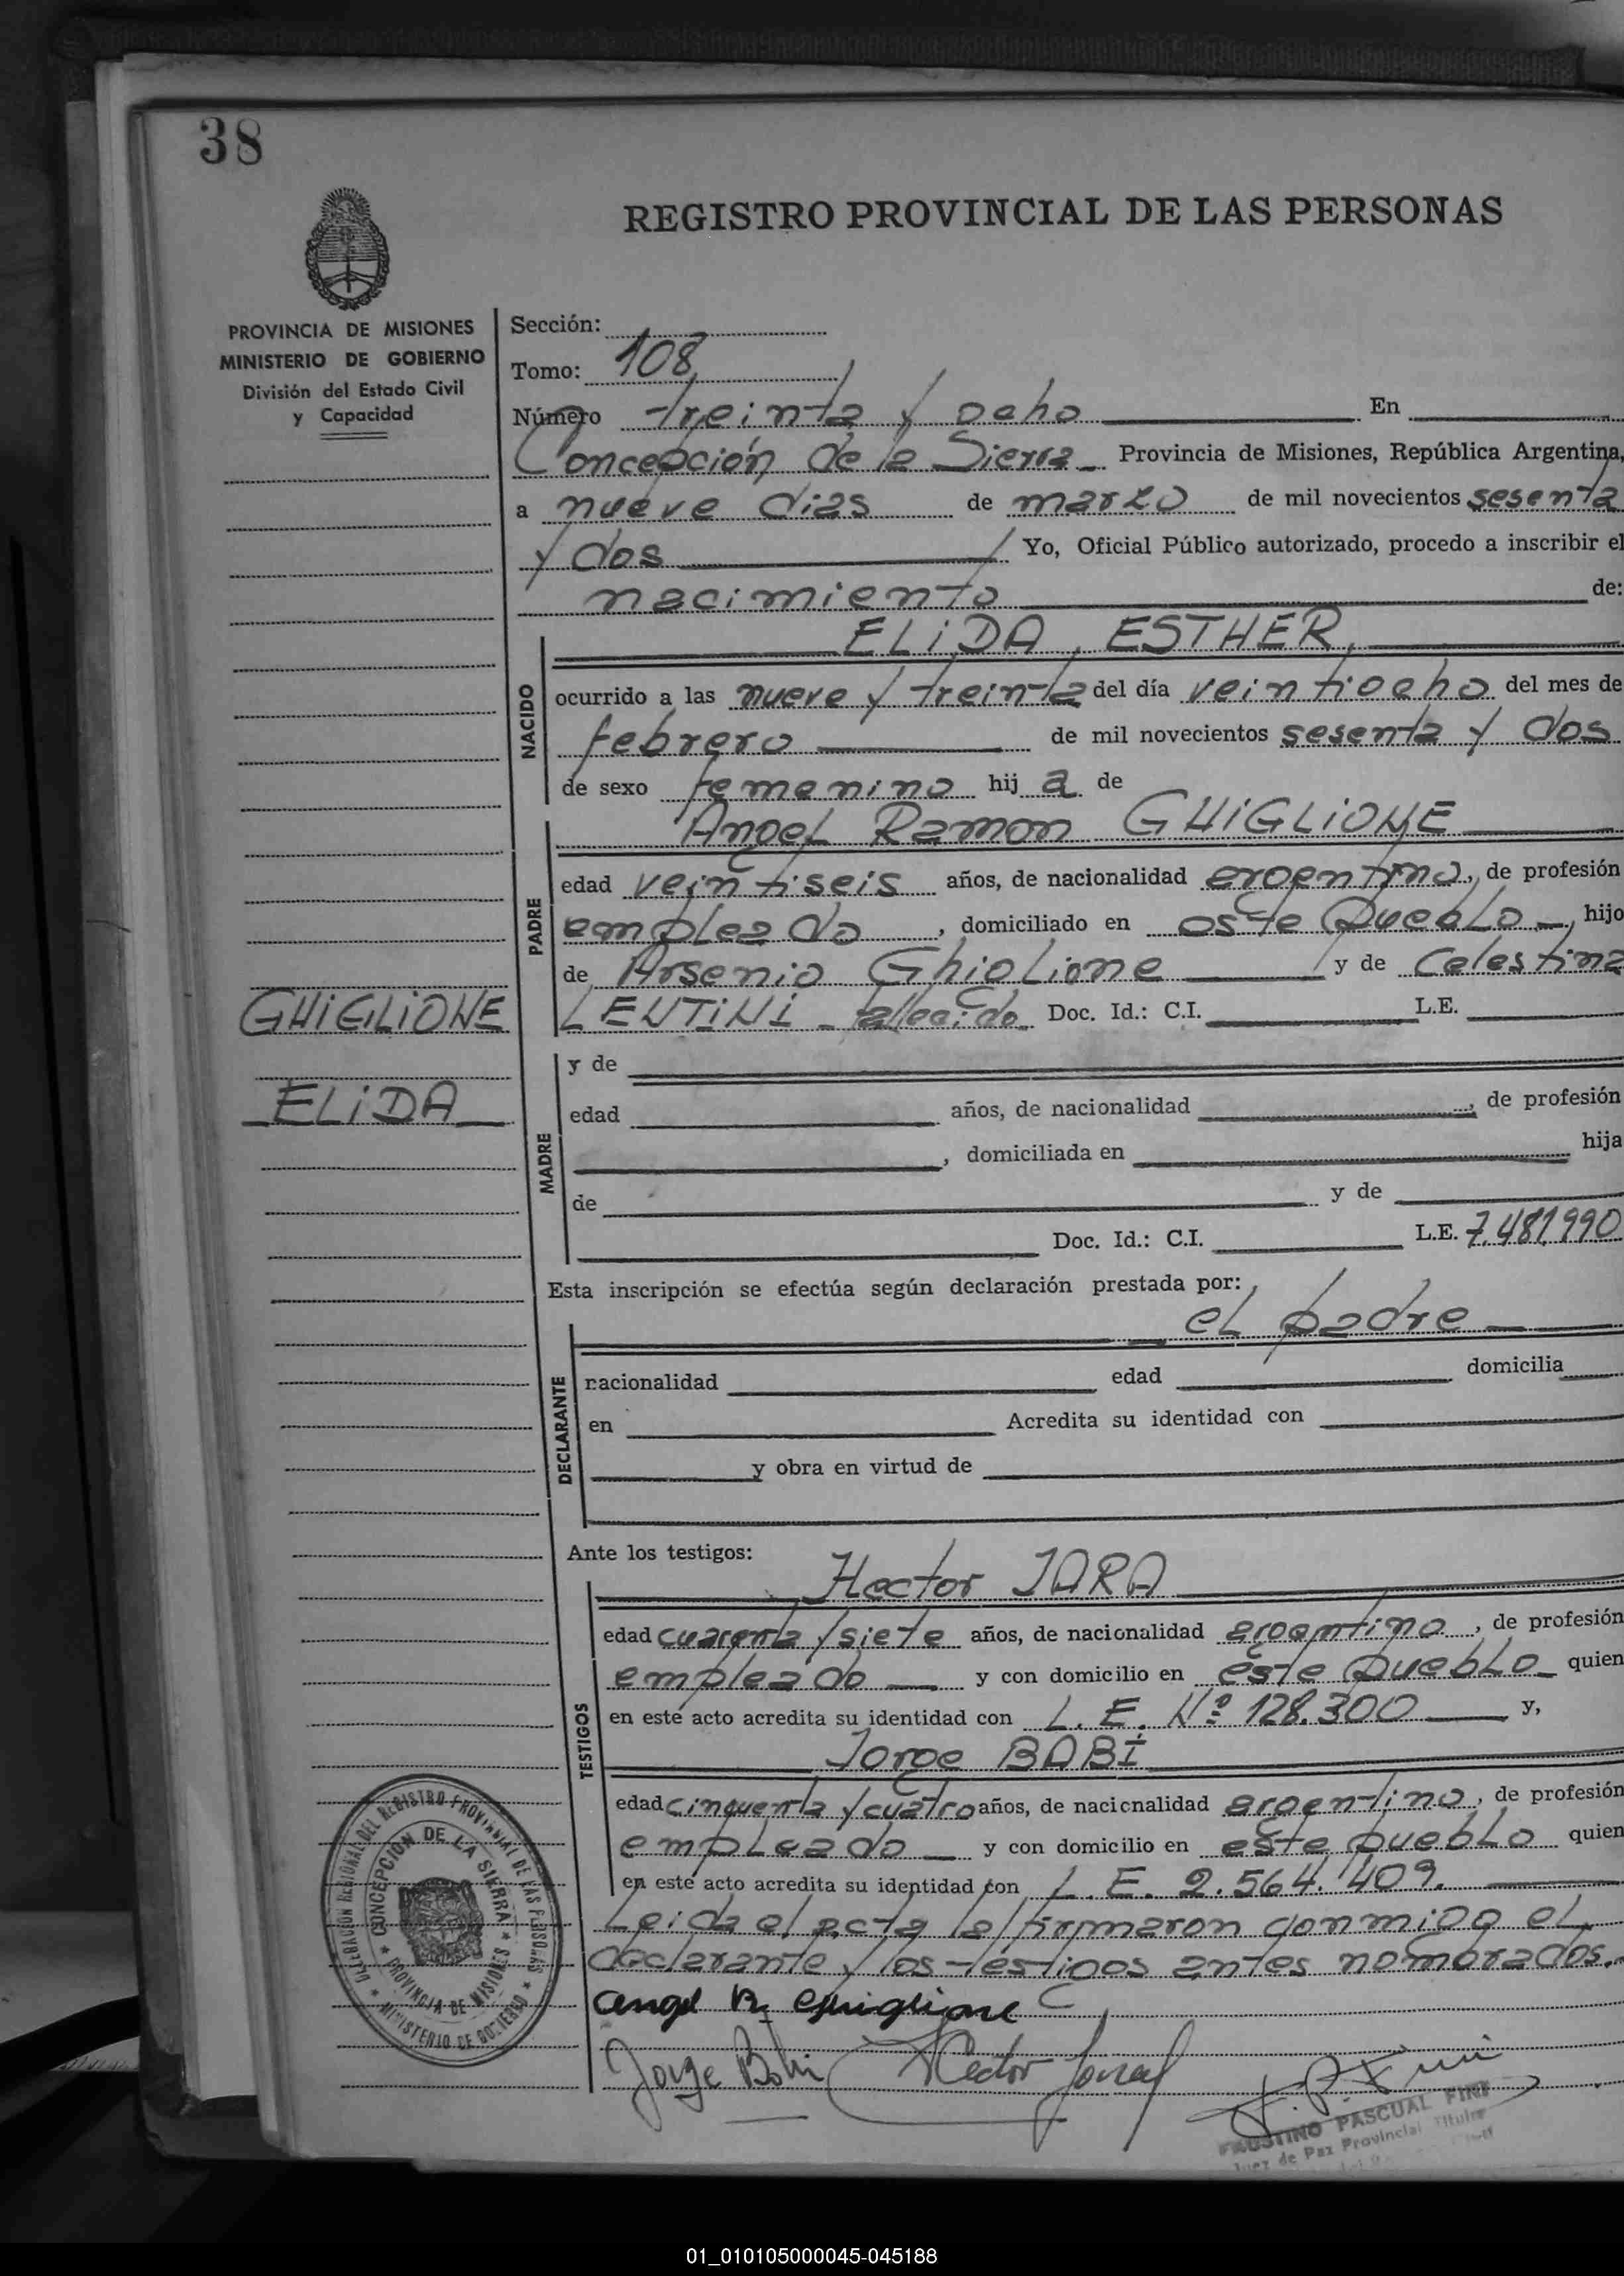 38
REGISTRO PROVINCIAL DE LAS PERSONAS
PROVINCIA DE MISIONES
MINISTERIO DE GOBIERNO
División del Estado Civil
y Capacidad
Sección:
Tomo: 108
Número treinta y ocho En
Concepción de la Sierra Provincia de Misiones, República Argentina,
a nueve dias de marzo de mil novecientos sesenta
y dos Yo, Oficial Público autorizado, procedo a inscribir el
nacimiento de:
NACIDO
ELiDA, ESTHER,
ocurrido a las nueve y treinta del día veintiocho del mes de
febrero de mil novecientos sesenta y dos
de sexo femenino hij a de
PADRE
Angel Ramon GHiGLiONE
edad veintiseis años, de nacionalidad argentino, de profesión
empleado, domiciliado en este pueblo, hijo
de Arsenio Ghiglione y de Celestina
LENTiNi - fallecido Doc. Id.: C.I. L.E.
GHiGLiONE
ELiDA
MADRE
y de
edad años, de nacionalidad , de profesión
, domiciliada en hija
de y de
Doc. Id.: C.I. L.E. 7.481.990
Esta inscripción se efectúa según declaración prestada por:
DECLARANTE
el padre
nacionalidad edad domicilia
en Acredita su identidad con
y obra en virtud de
Ante los testigos:
TESTIGOS
Hector JARA
edad cuarenta y siete años, de nacionalidad argentino, de profesión
empleado y con domicilio en este pueblo quien
en este acto acredita su identidad con L. E. Nº 128.300 y,
Jorge BABI
edad cinquenta y cuatro años, de nacionalidad argentino, de profesión
empleado y con domicilio en este pueblo quien
en este acto acredita su identidad con L. E. 2.564.409.
Leida el acta la firmaron conmigo el
declarante y los testigos antes nombrados.
Angel R. Ghiglione
Jorge Babi Hector Jara F. P. Fini
FAUSTINO PASCUAL FINI
Juez de Paz Provincial Titular
DELEGACION REGIONAL DEL REGISTRO PROVINCIAL DE LAS PERSONAS
MINISTERIO DE GOBIERNO
CONCEPCION DE LA SIERRA
PROVINCIA DE MISIONES
01_010105000045-045188